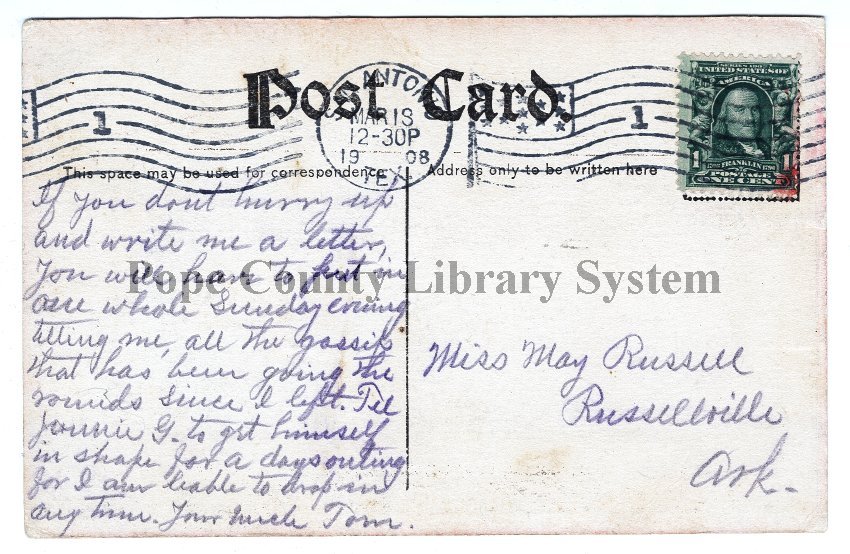 Post Card.
ANTONI
MAR 18
12-30P
19 08
TEX
1
1
SERIES 1902
UNITED STATES OF
AMERICA
FRANKLIN
1 POSTAGE 1
ONE CENT
This space may be used for correspondence
Address only to be written here
If you dont hurry up
and write me a letter,
You will have to put in
one whole Sunday evening
telling me, all the gossip
that has been going the
rounds since I left. Tell
Jonnie G. to get himself
in shape for a days outing
for I am liable to drop in
any time. Your uncle Tom.
Miss May Russell
Russellville
Ark.
Pope County Library System